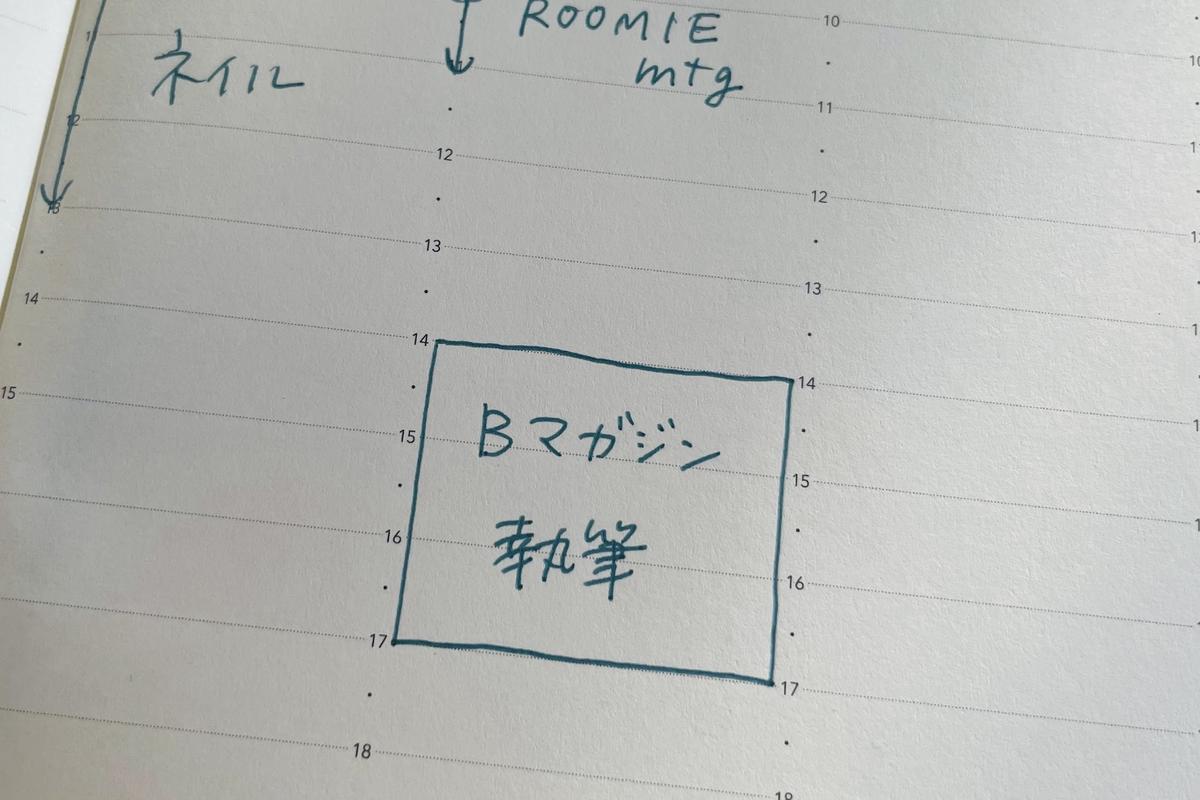 ネイル
12
13
14
15
ROOMIE
mtg
12
13
14
Bマガジン
15
執筆
16
17
18
10
11
12
13
14
15
16
17
18